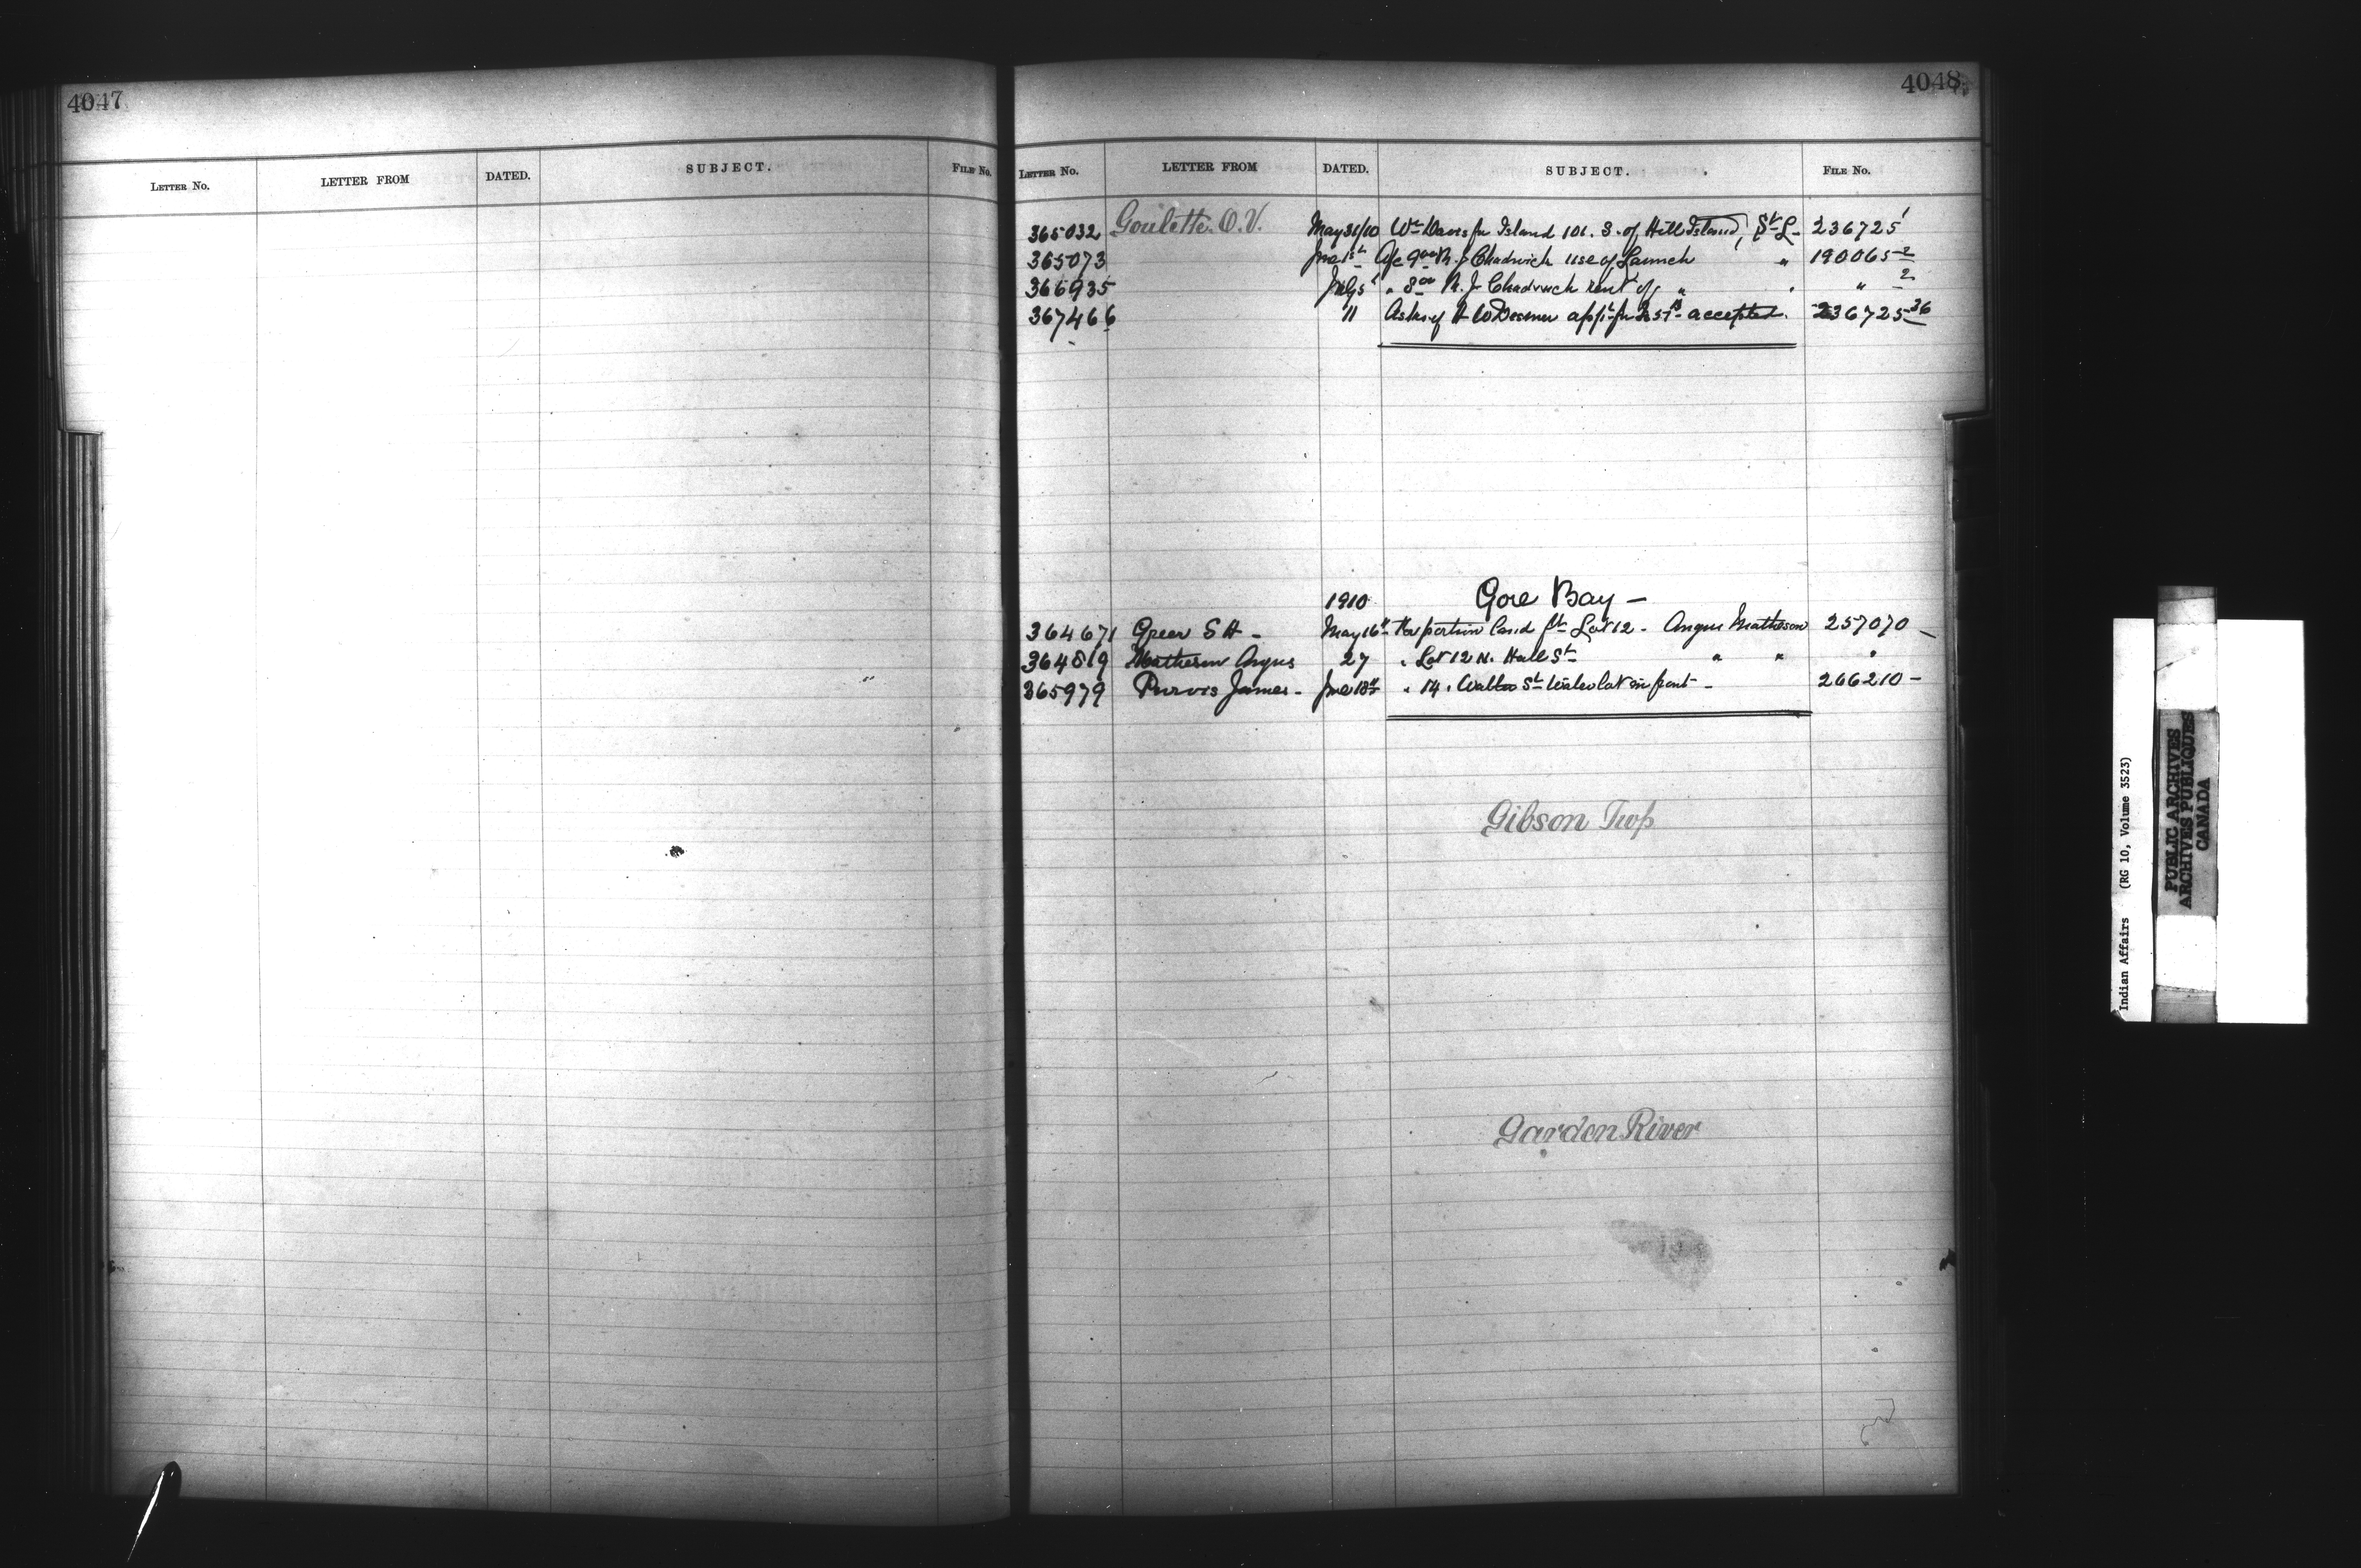 4047
LETTER NO. LETTER FROM DATED. SUBJECT. FILE NO.
4048
LETTER NO. LETTER FROM DATED. SUBJECT. FILE NO.
365032 Goulette. O.V. May 31/10 Wm Davis for Island 101. S. of Hill Island, St L- 236725
365073 June 1st a/c 9.00 R. J. Chadwick use of Launch " 190065-2
366935 July 5 " 8.00 R. J. Chadwick rent of " " " 2
367466 11 Asks if H W appl. for accepted. 236725-36
1910 Gore Bay —
364671 Greer S H - May 16th For portion land Lot 12 - Angus Matheson 257070 —
364819 Matheson Angus 27 " Lot 12 N. Hall St " " "
365979 Purvis James - June 18th " 14 " St Water lot in front - 266210 —
Gibson Twp
Garden River
Indian Affairs (RG 10, Volume 3523)
PUBLIC ARCHIVES
ARCHIVES PUBLIQUES
CANADA